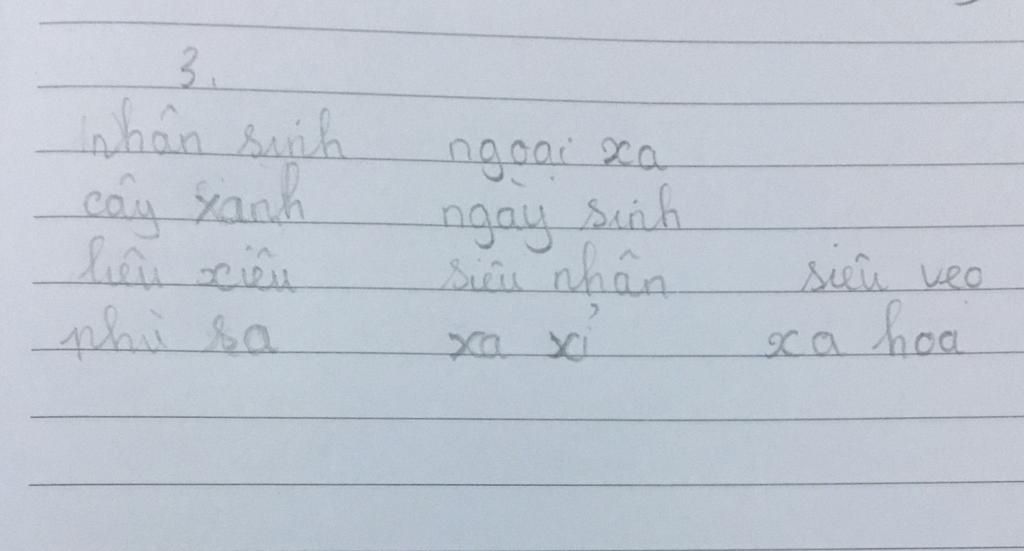 3.
nhân sinh ngoại xa
cây xanh ngày sinh
liêu xiêu siêu nhân siêu vẹo
phù sa xa xỉ xa hoa